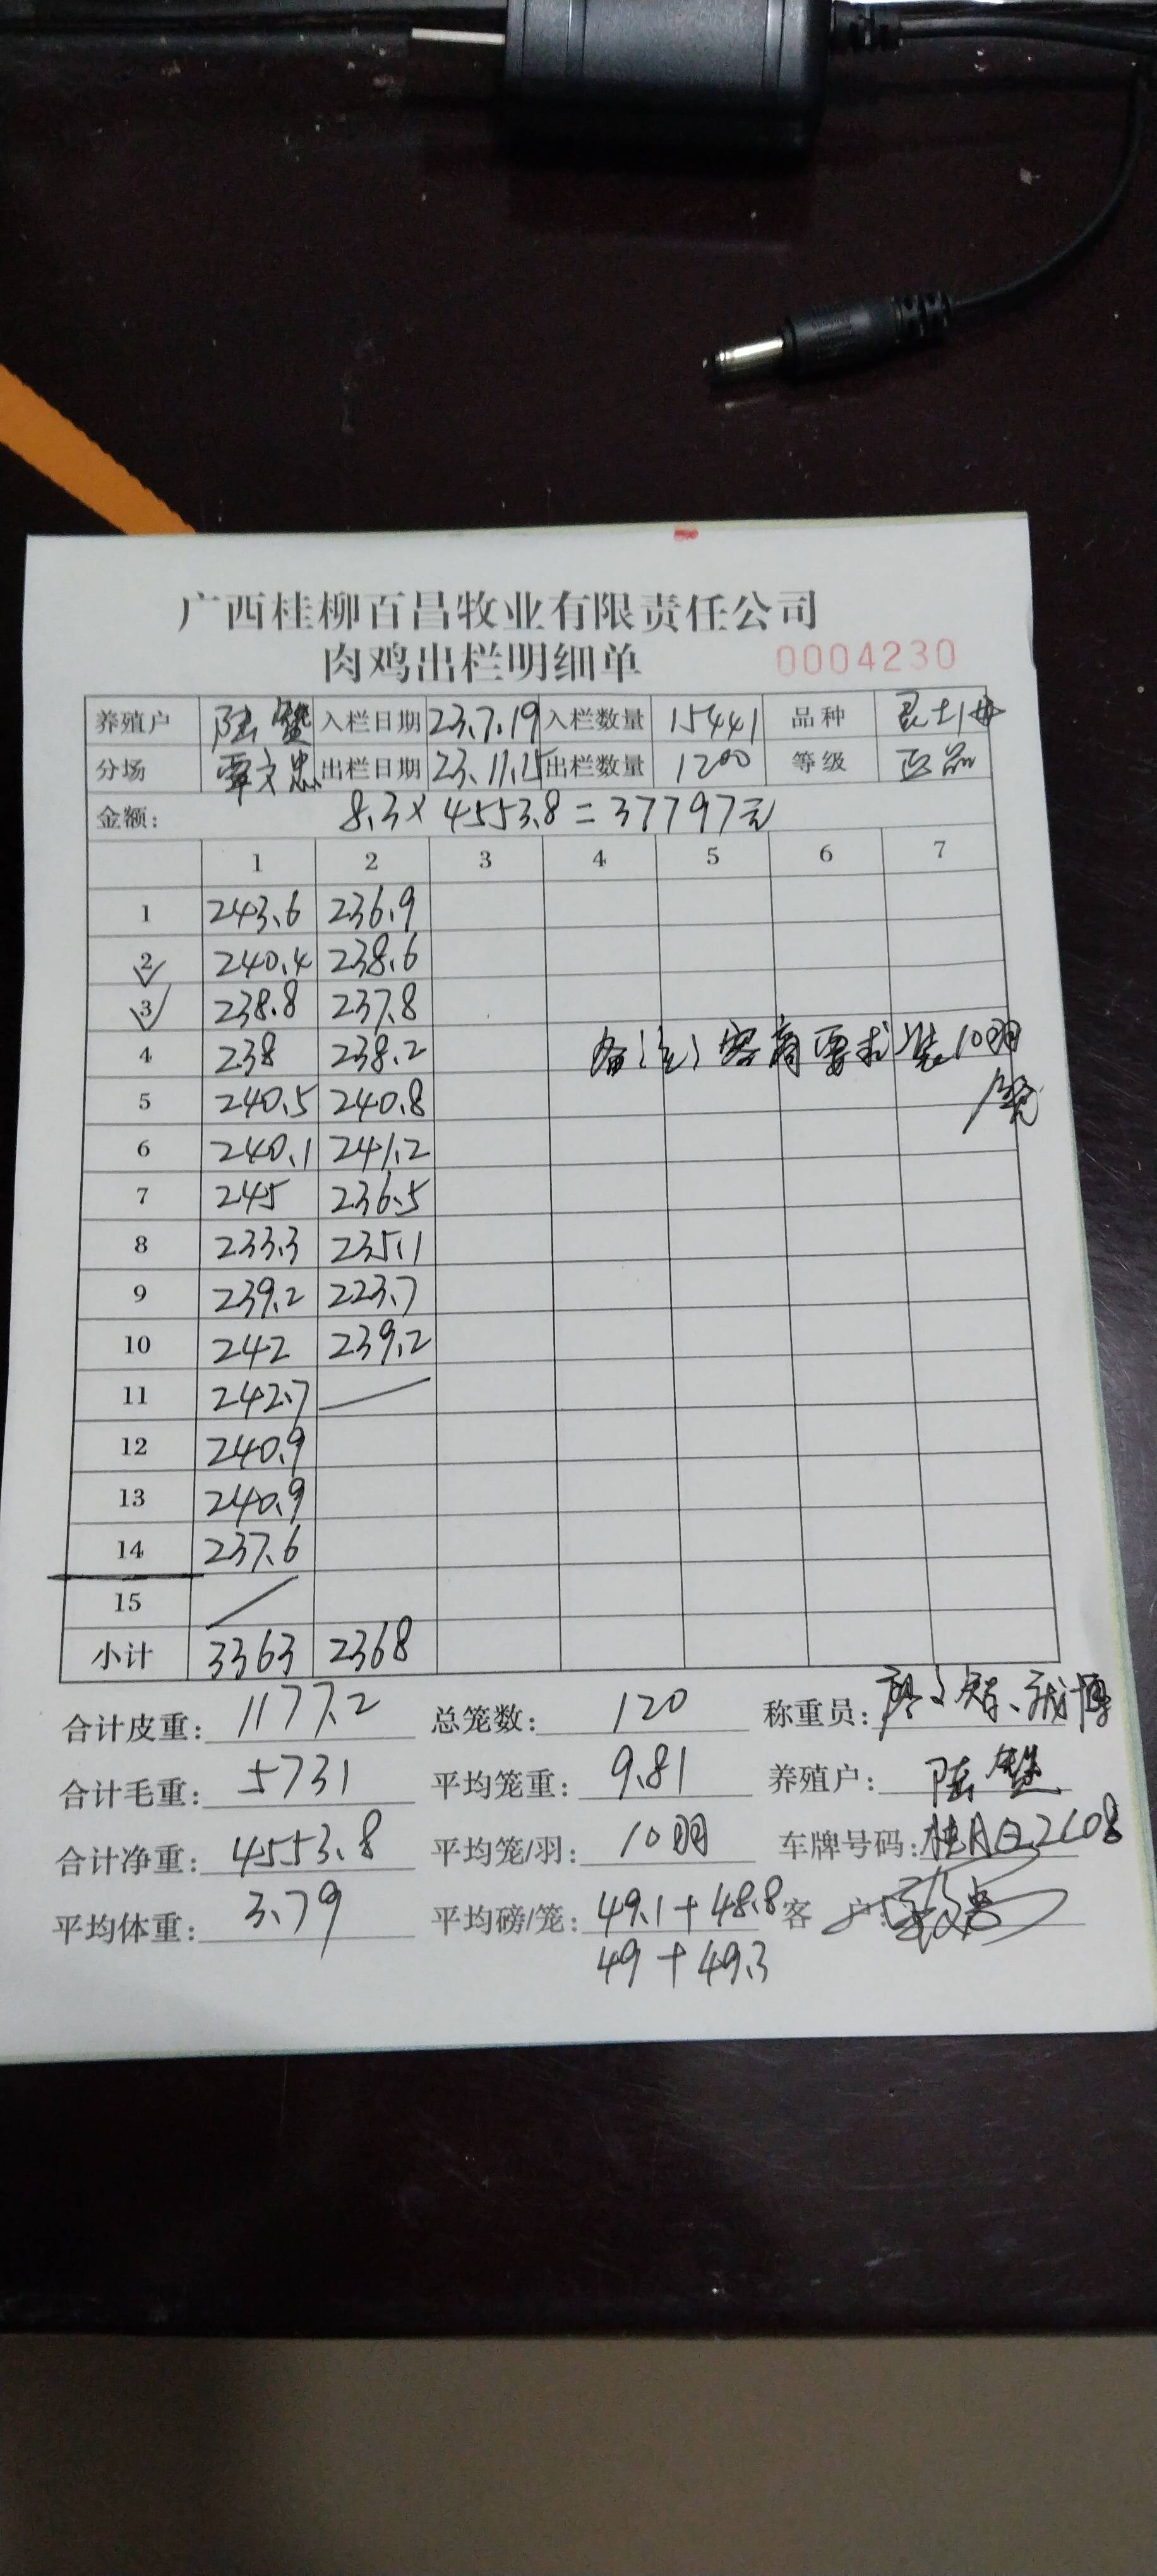 广西桂柳百昌牧业有限责任公司
肉鸡出栏明细单 0004230
养殖户 陆 入栏日期 23.7.19 入栏数量 15441 品种
分场 覃文忠 出栏日期 23.11.15 出栏数量 1200 等级 正品
金额: 8.3×4553.8=37797元
1 2 3 4 5 6 7
1 243.6 236.9
2 240.4 238.6
3 238.8 237.8
4 238 238.2 备注:客商要求装10羽
/笼
5 240.5 240.8
6 240.1 241.2
7 245 236.5
8 233.3 235.1
9 239.2 223.7
10 242 239.2
11 242.7
12 240.9
13 240.9
14 237.6
15
小计 3363 2368
合计皮重: 1177.2 总笼数: 120 称重员:
合计毛重: 5731 平均笼重: 9.81 养殖户: 陆
合计净重: 4553.8 平均笼/羽: 10羽 车牌号码:
平均体重: 3.79 平均磅/笼: 49.1+48.8 客 户:
49+49.3